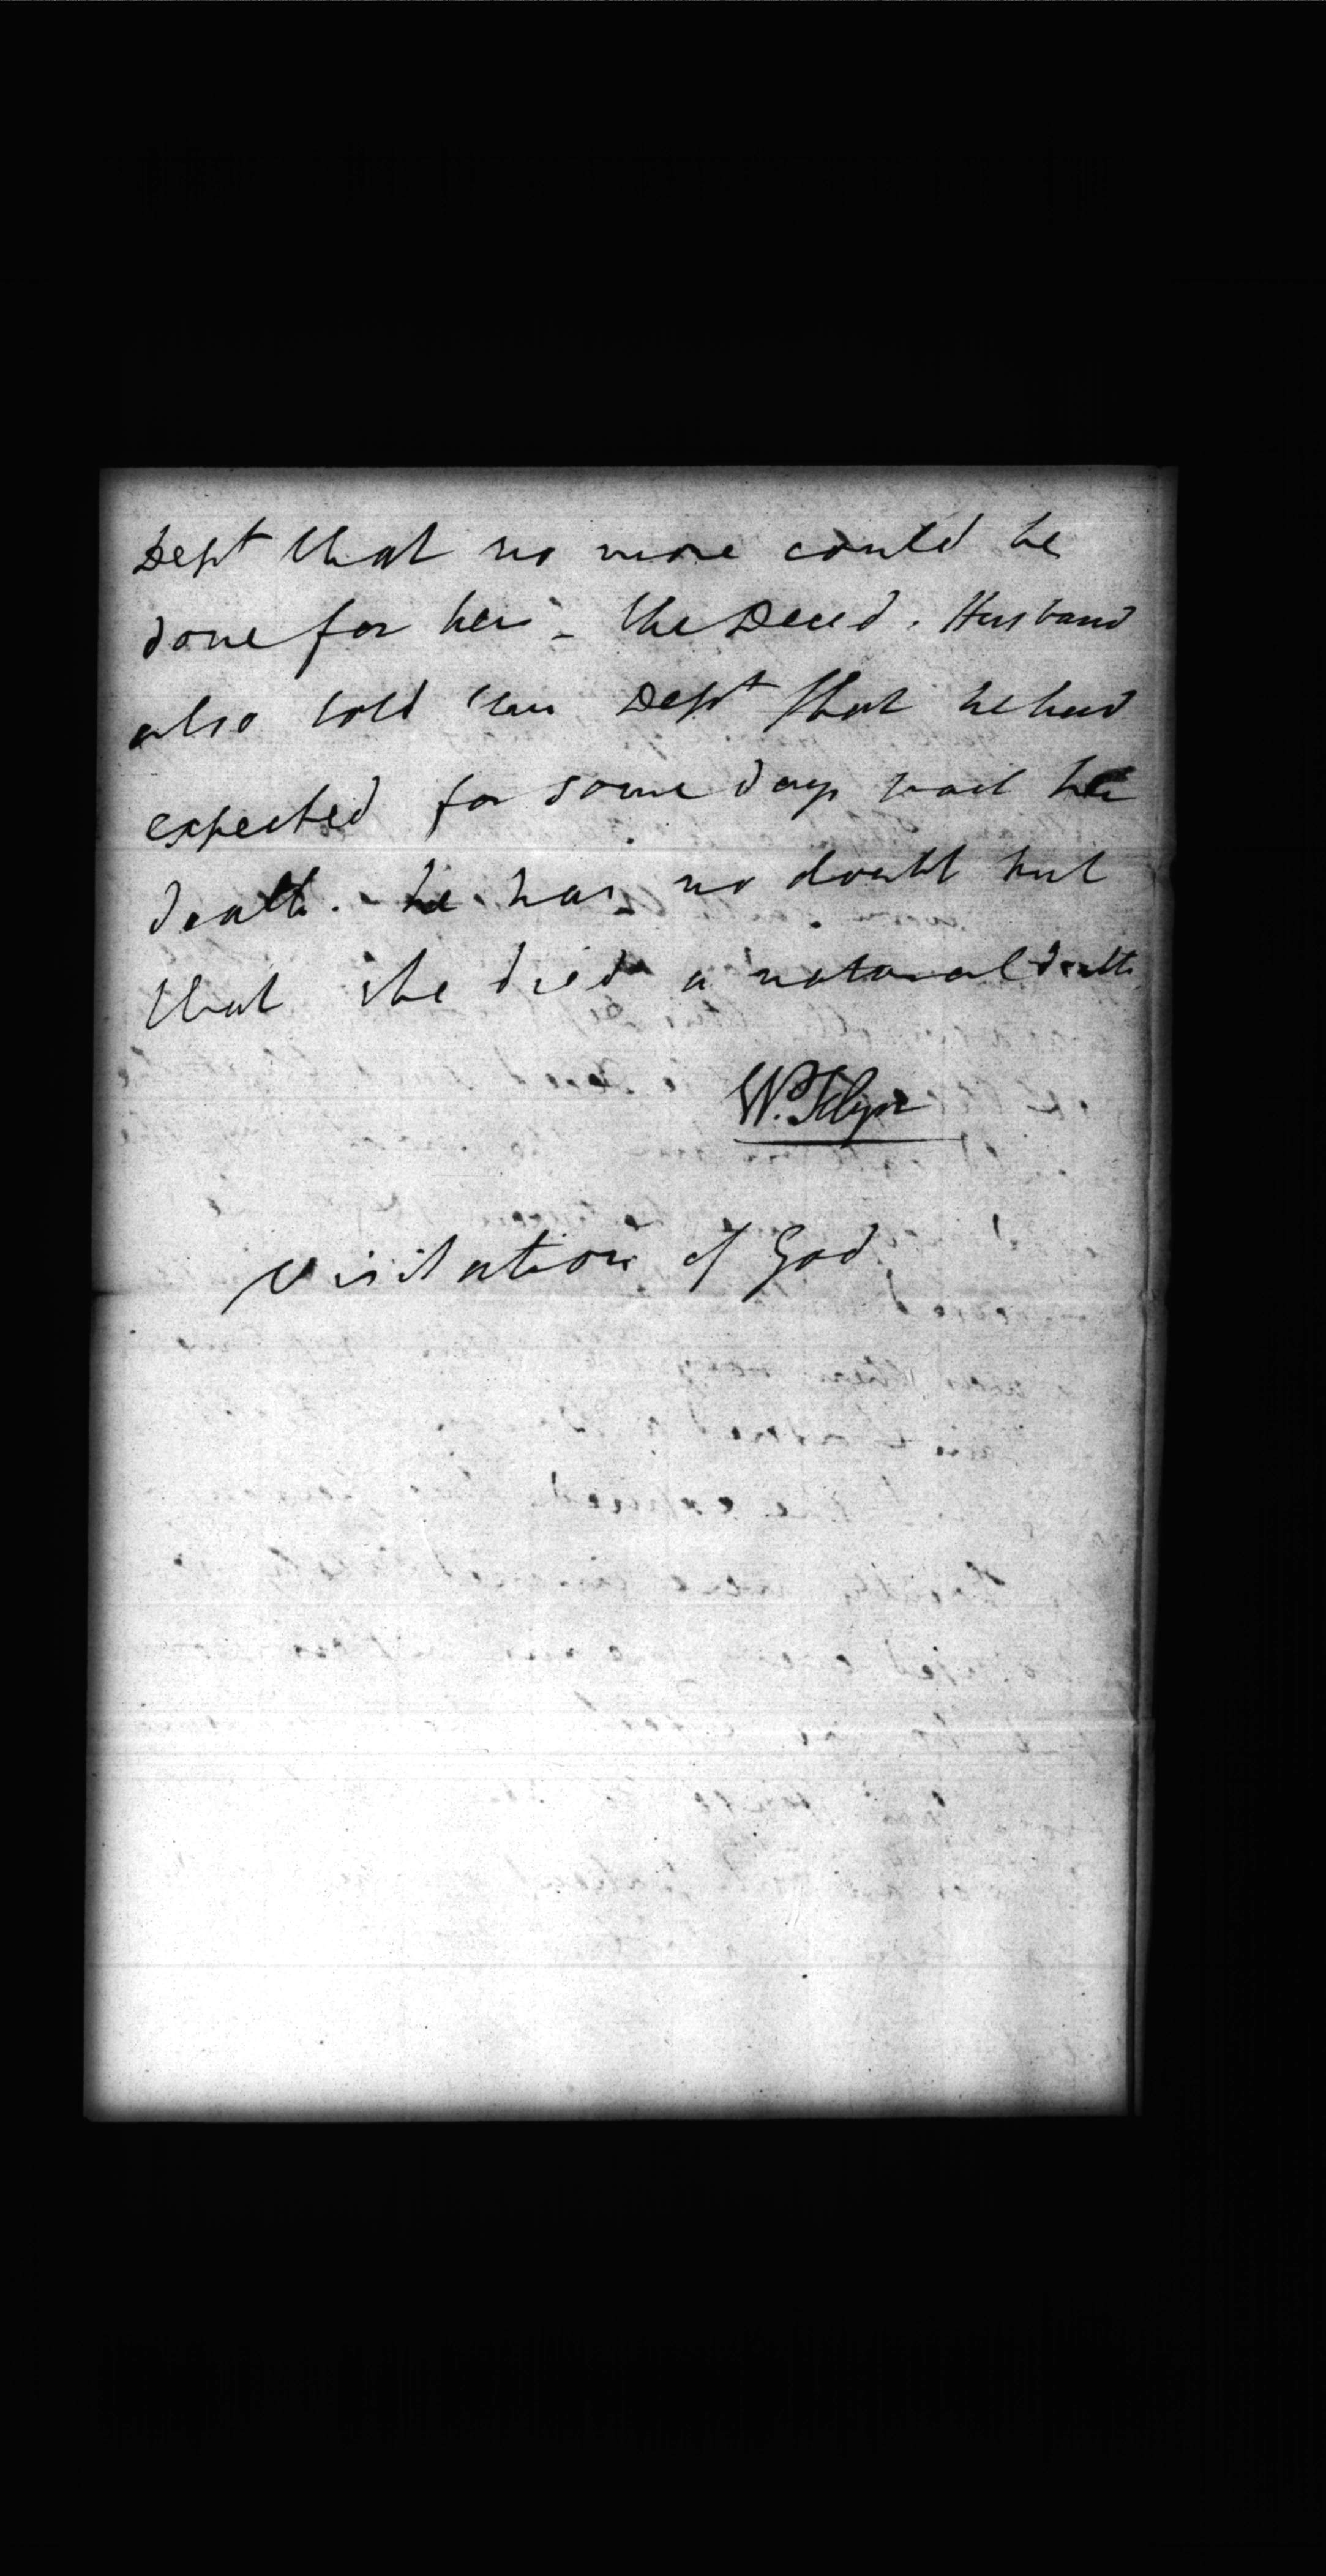 Dept that no more could be
done for her - the Deced. Husband
also told this Dept that he had
expected for some days past her
death. - he has no doubt but
that she died a natural death
Visitation of God